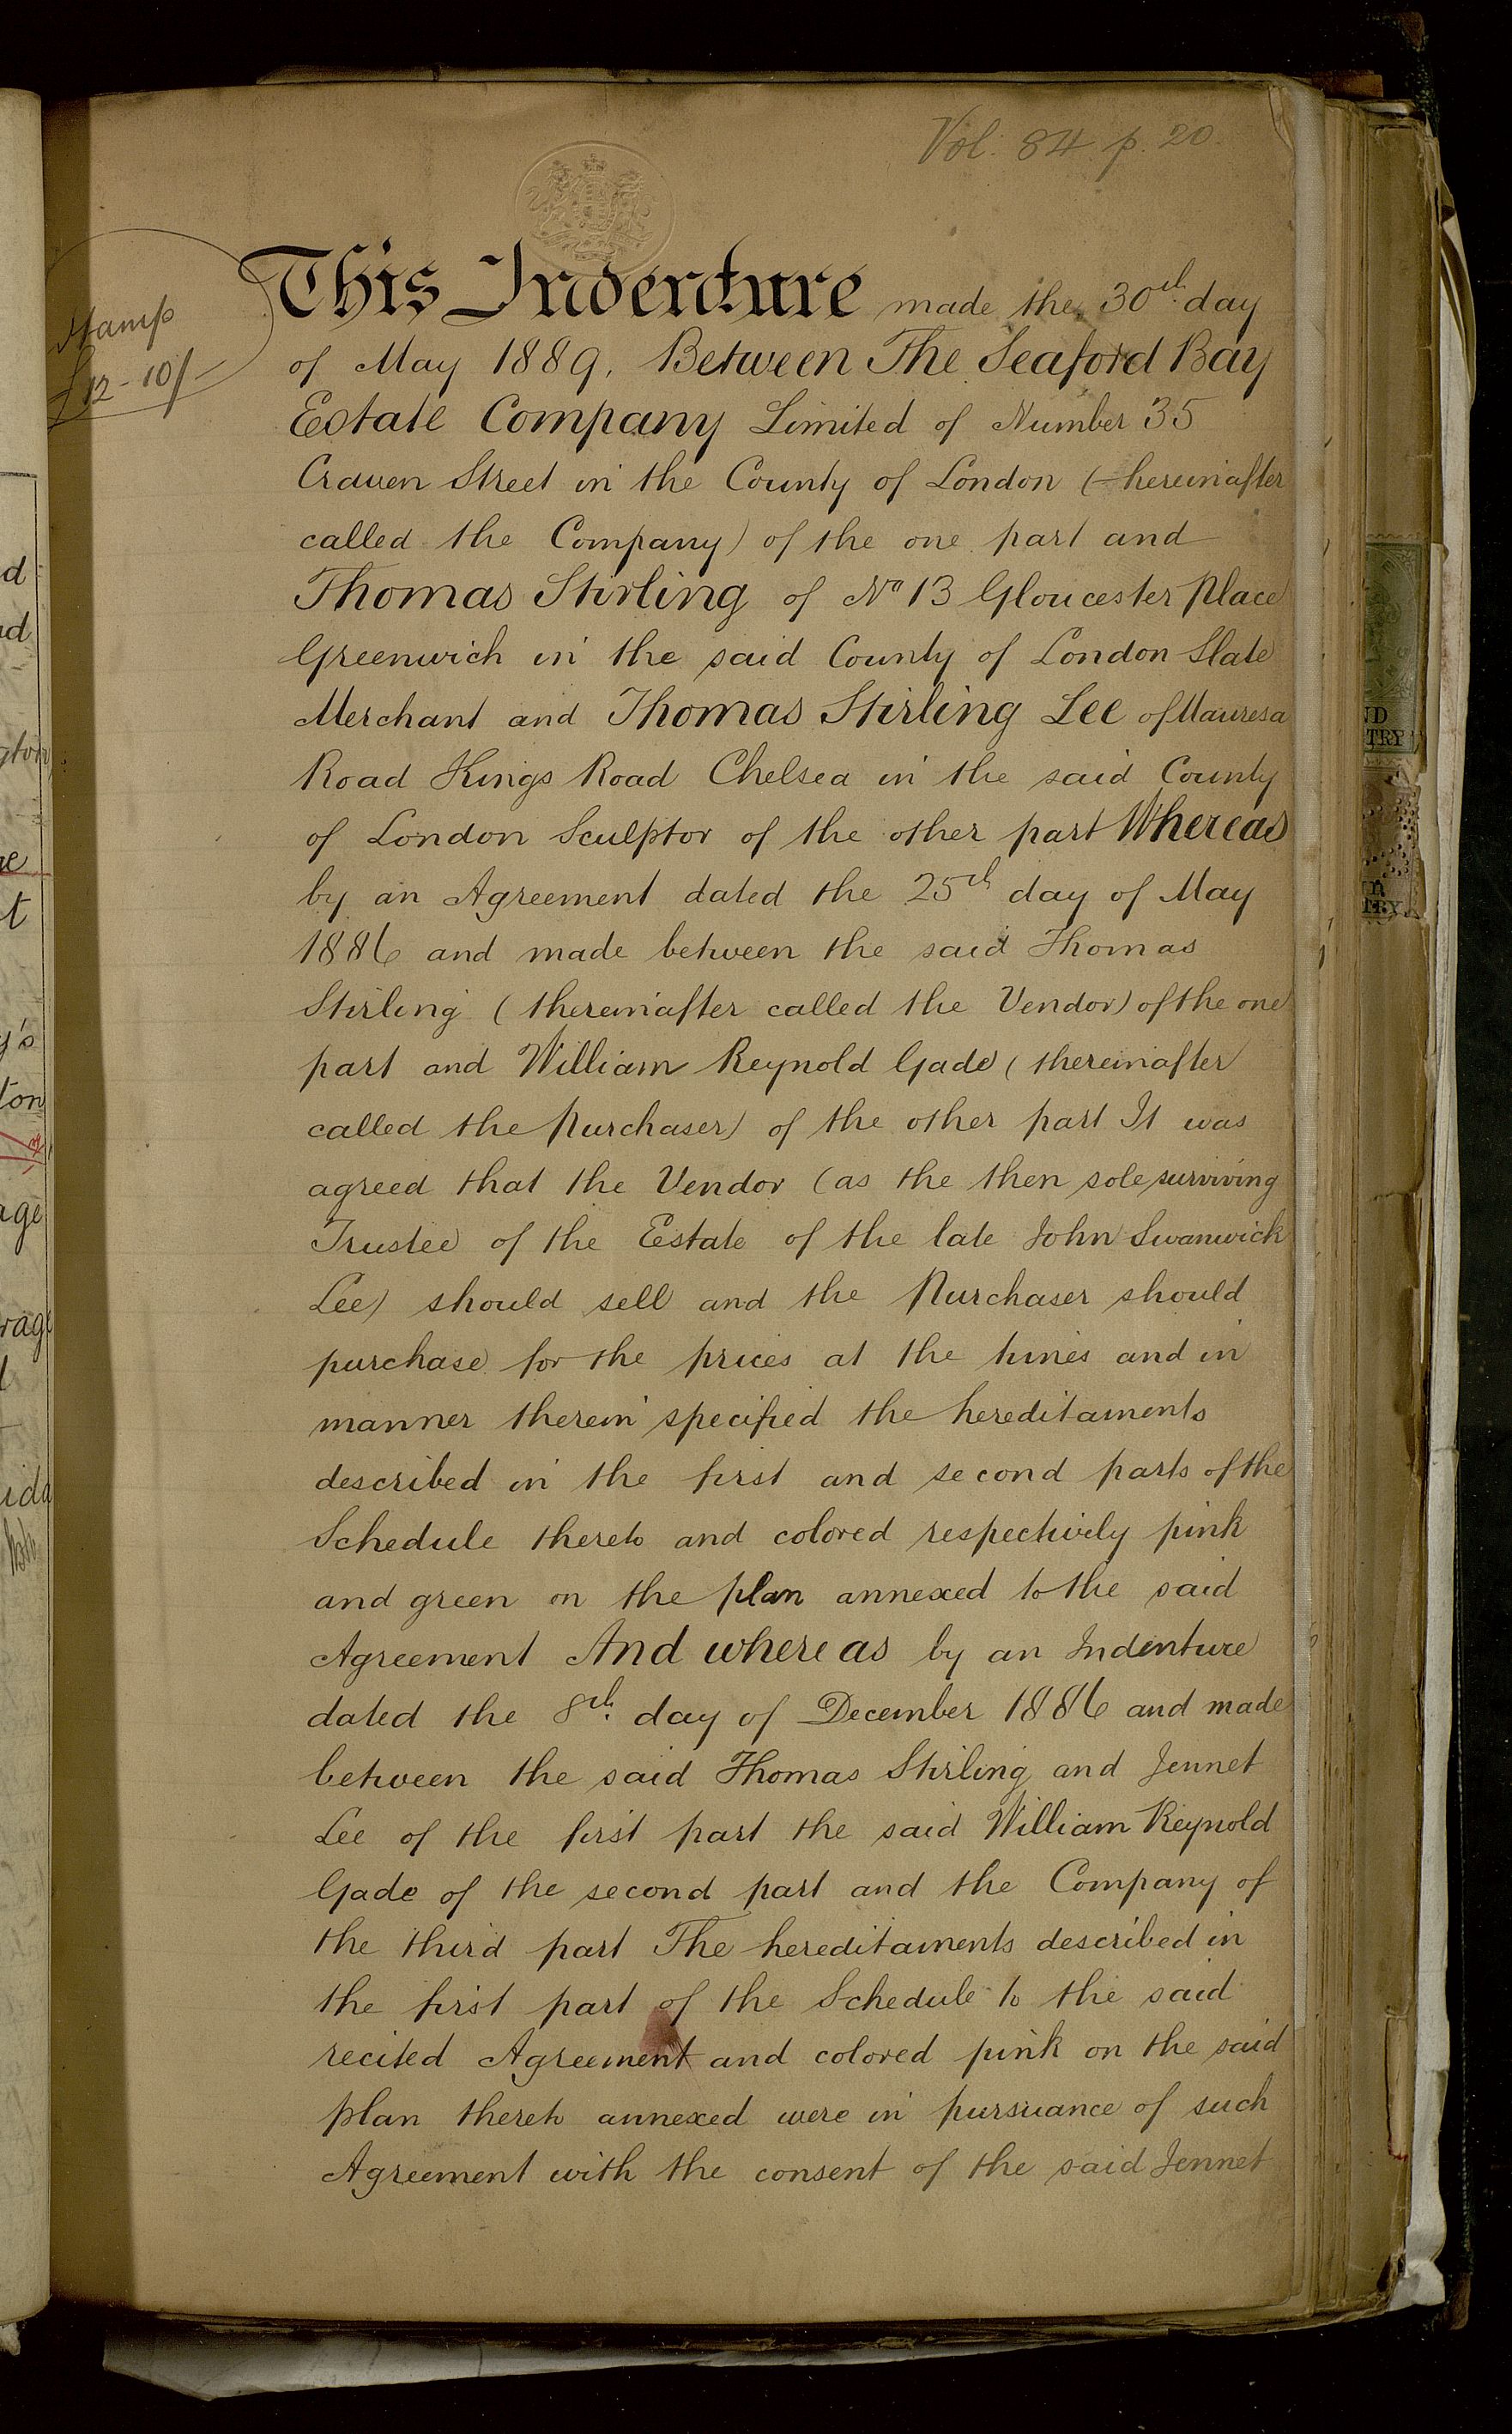 Vol. 84 p. 20.
Stamp
£12-10/-
This Indenture made the 30th day
of May 1889, Between The Seaford Bay
Estate Company Limited of Number 35
Craven Street in the County of London (hereinafter
called the Company) of the one part and
Thomas Stirling of No 13 Gloucester Place
Greenwich in the said County of London Slate
Merchant and Thomas Stirling Lee of Mauresa
Road Kings Road Chelsea in the said County
of London Sculptor of the other part Whereas
by an Agreement dated the 25th day of May
1886 and made between the said Thomas
Stirling (thereinafter called the Vendor) of the one
part and William Reynold Gade (thereinafter
called the Purchaser) of the other part It was
agreed that the Vendor (as the then sole surviving
Trustee of the Estate of the late John Swanwick
Lee) should sell and the Purchaser should
purchase for the prices at the times and in
manner therein specified the hereditaments
described in the first and second parts of the
Schedule thereto and colored respectively pink
and green on the plan annexed to the said
Agreement And whereas by an Indenture
dated the 8th day of December 1886 and made
between the said Thomas Stirling and Jennet
Lee of the first part the said William Reynold
Gade of the second part and the Company of
the third part The hereditaments described in
the first part of the Schedule to the said
recited Agreement and colored pink on the said
plan thereto annexed were in pursuance of such
Agreement with the consent of the said Jennet